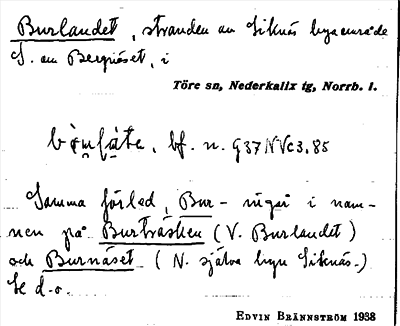 Burlandet, stranden av Siknäs byaområde
S. om Bergnäset, i
Töre sn, Nederkalix tg, Norrb. l.
bf. n. G37NVc3,85
Samma förled, Bur- ingår i nam-
nen på Burträsken (V. Burlandet)
och Burnäset (N. själva byn Siknäs.)
Se d.o.
EDVIN BRÄNNSTRÖM 1938